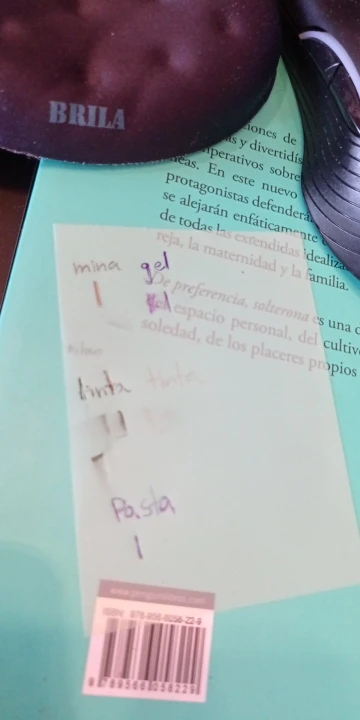 BRILA
ciones de
as y divertidís
perativos sobre
neas. En este nuevo
protagonistas defenderá
se alejarán enfáticamente
de todas las extendidas idealiza
reja, la maternidad y la familia.
De preferencia, solterona es una o
el espacio personal, del cultivo
soledad, de los placeres propios
mina gel
tinta tinta
Pasta
www.penguinlibros.com
ISBN: 978-956-6058-22-9
9 789566 058229